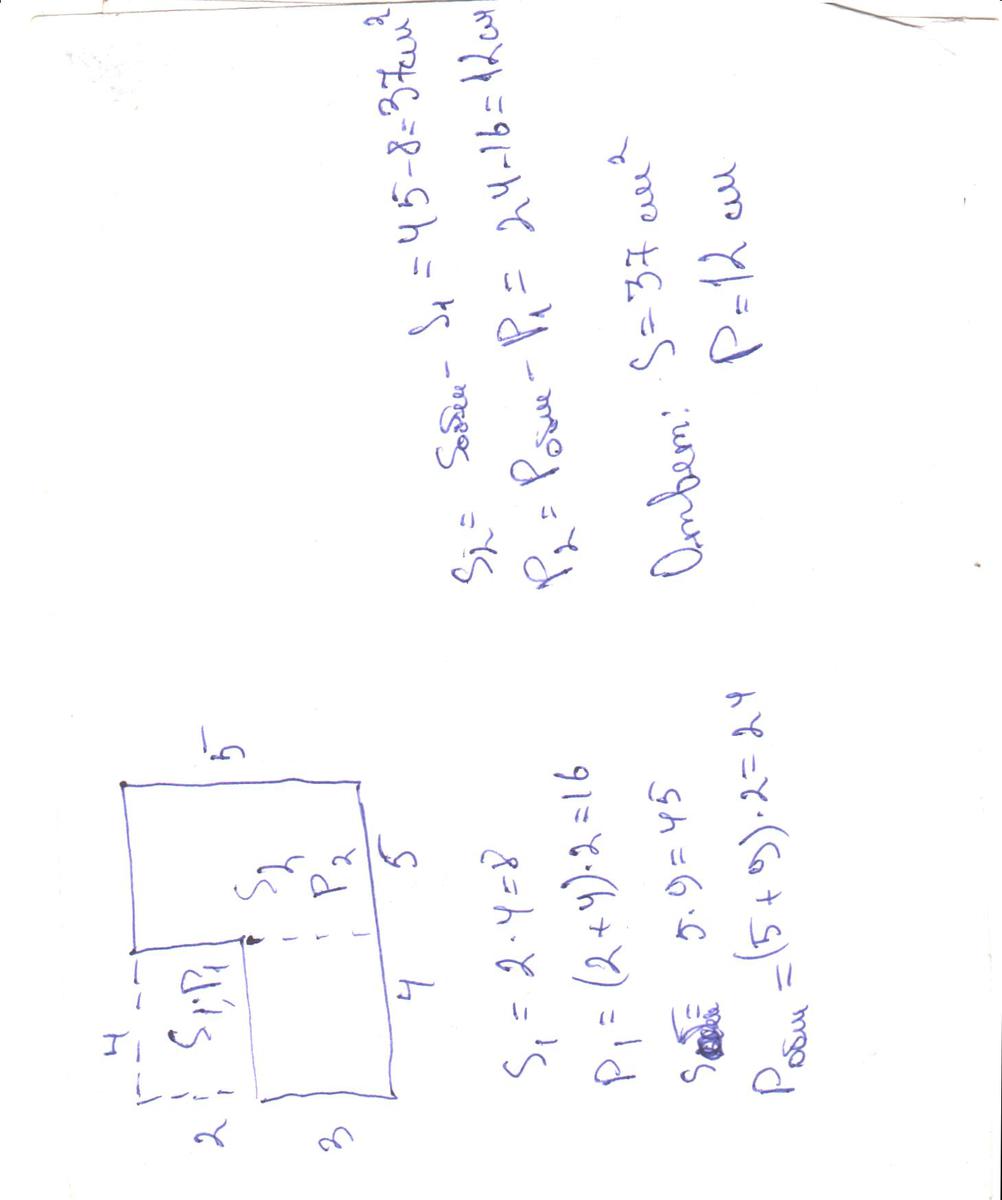 4
2 S₁;P₁ 5
S₂
P₂
3
4 5
S₁ = 2·4=8
P₁ = (2+4)·2=16
S = 5·9=45
Pобщ =(5+9)·2=24
S₂= Sобщ - S₁ = 45-8=37см²
P₂ = Pобщ - P₁ = 24-16=12см
Ответ: S=37 см²
P=12 см